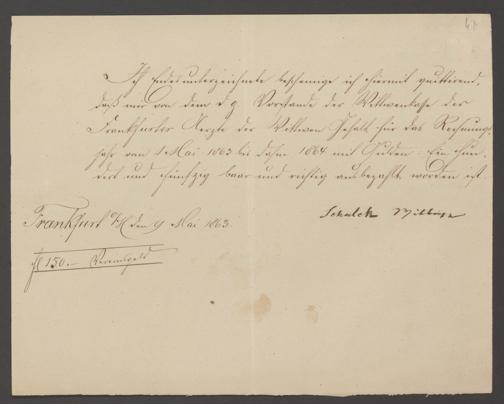 67
Ich Endesunterzeichnete bescheinige ich hiermit quittirend,
daß mir von dem d. g. Vorstande der Wittwenkasse der
Frankfurter Aerzte der Wittwen Gehalt für das Rechnungs
jahr von 1 Mai 1863 bis dahin 1864 mit Gulden: Ein Hun¬
dert und fünfzig baar und richtig ausbezahlt worden ist.
Frankfurt a/M den 9 Mai 1863.
Schalck Wittwe
fl 150.– Vereinsgeld